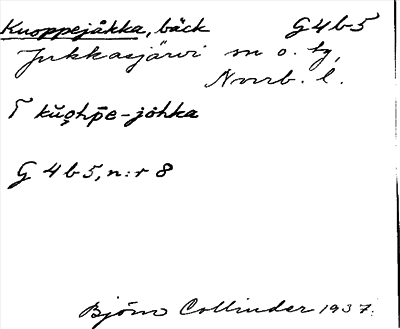 Kuoppejåkka, bäck G4b5
Jukkasjärvi sn o. tg,
Norrb. l.
Γ kŭo̯hp̄e-jȯhka
G 4b5, n:r 8
Björn Collinder 1937.